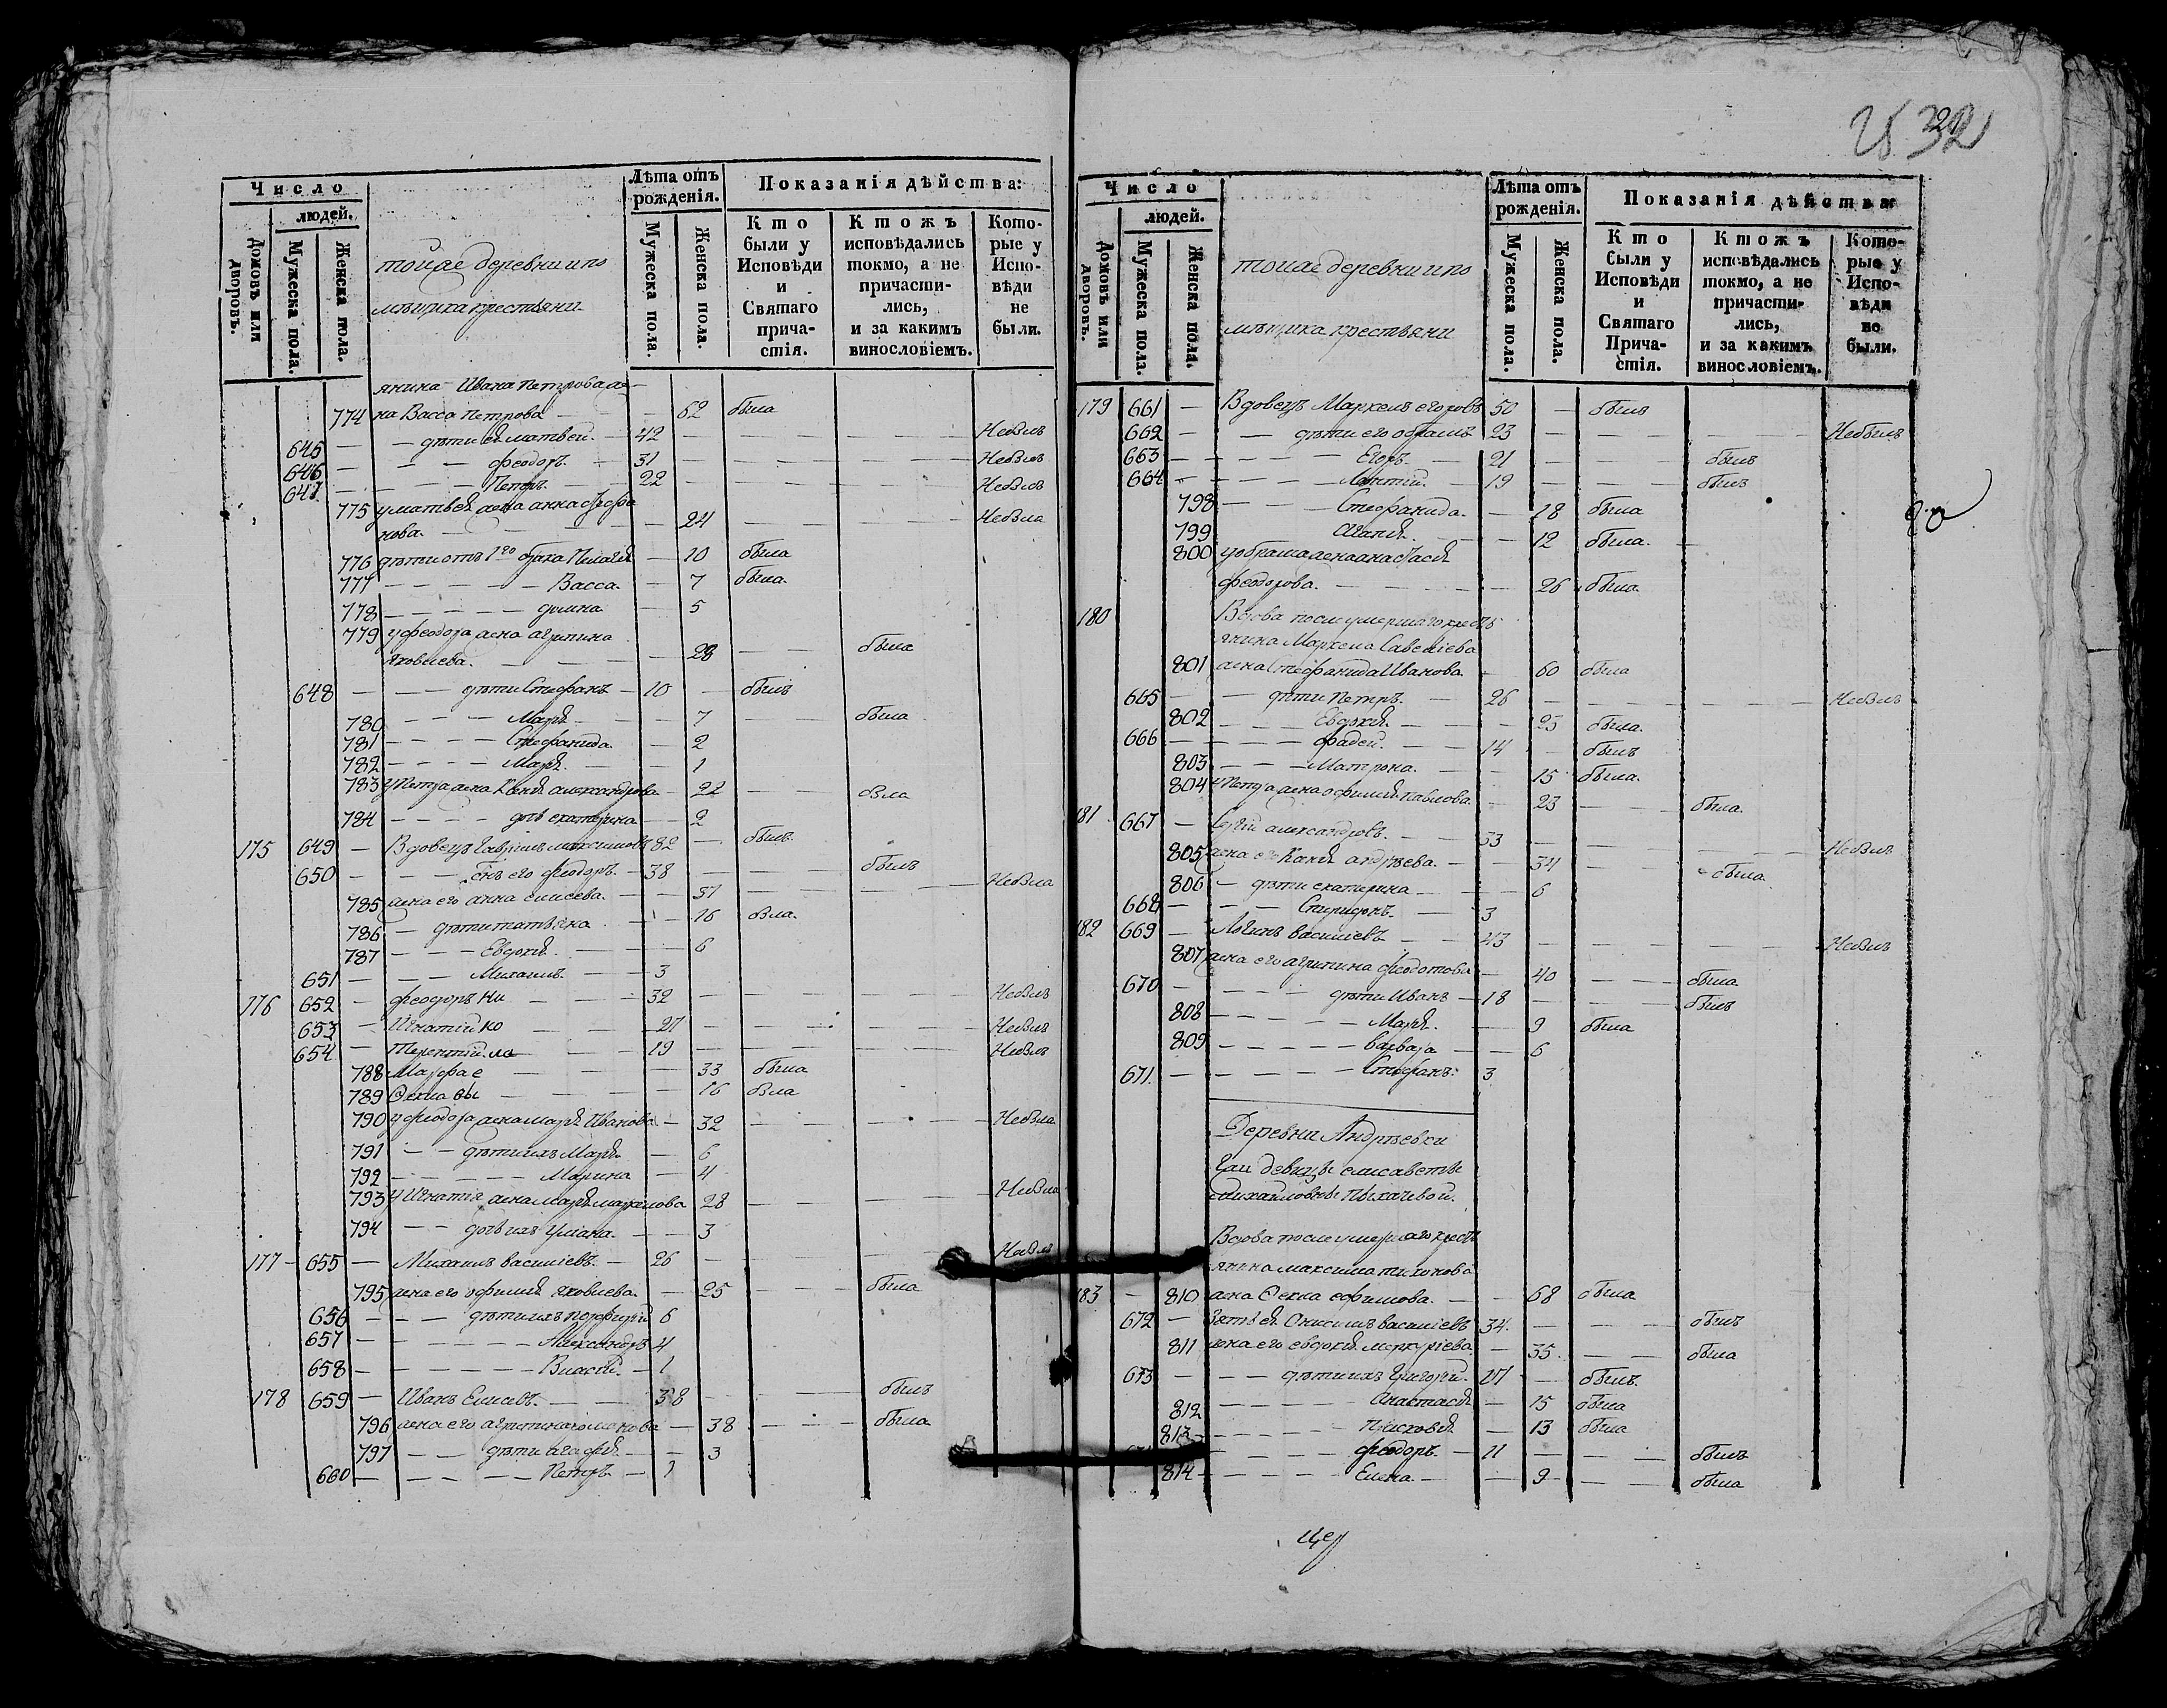 32
Число
людей.
Домовъ или дворовъ.
Мужеска пола.
Женска пола.
тойже деревни и по
мѣщика крестьяни
Лѣта отъ рожденія.
Мужеска пола.
Женска пола.
Показанія дѣйства:
Кто были у Исповѣди и Святаго причастія.
Ктожъ исповѣдались токмо, а не причастились, и за какимъ винословіемъ.
Которые у Исповѣди не были.
янина Ивана Петрова же-
774 на Васса Петрова — 62 была
645 — дѣти ея Матвей. — 42 — Небылъ
646 — Феодоръ. — 31 — Небылъ
647 — Петръ. — 22 — Небылъ
775 у Матвея жена Анна
нова. — 24 — Небыла
776 дѣти отъ 1го брака Пелагея — 10 была
777 — Васса. — 7 была.
778 — Домна — 5
779 у Феодора жена Агрипина
Яковлева. — 28 — была
648 — дѣти Стефанъ — 10 — былъ
780 — Марья — 7 — была
781 — Стефанида. — 2
782 — Марья. — 1
783 у Петра жена Ксенія Александрова — 22 — была
784 — дочь Екатерина — 2
175 649 — Вдовецъ Гавріилъ Максимовъ 82 — былъ
650 — Сынъ его Феодоръ. — 38 — былъ
785 жена его Анна Елисеева. — 37 — Небыла
786 — дѣти Татьяна — 16 была.
787 — Евдокія. — 6
651 — Михаилъ. — 3
176 652 — Феодоръ Ни — 32 — Небылъ
653 — Игнатій ко — 27 — Небылъ
654 — Терентій ла — 19 — Небылъ
788 Марфа е — 33 была
789 Ѳекла вы — 16 была
790 у Феодора жена Марья Иванова — 32 — Небыла
791 — дѣти ихъ Марья — 6
792 — Марина — 4
793 у Игнатія жена Марья Маркелова 28 — Небыла
794 — дочь ихъ Уліана. — 3
177 — 655 — Михаилъ Василіевъ. — 26 — Небылъ
795 жена его Офимія Яковлева. — 25 — была
656 — дѣти ихъ Порфирій 6
657 — Александръ 4
658 — Власій. — 1
178 659 — Иванъ Елисѣевъ. — 38 — былъ
796 жена его Агрипина — 38 — была
797 — дѣти Агафія — 3
660 — Петръ — 1
Число
людей.
Домовъ или дворовъ.
Мужеска пола.
Женска пола.
тойже деревни и по
мѣщика крестьяни
Лѣта отъ рожденія.
Мужеска пола.
Женска пола.
Показанія дѣйства:
Кто были у Исповѣди и Святаго Причастія.
Ктожъ исповѣдались токмо, а не причастились, и за какимъ винословіемъ.
Которые у Исповѣди не были.
179 661 — Вдовецъ Маркелъ Егоровъ 50 — былъ
662 — дѣти его Обрамъ 23 — Небылъ
663 — Егоръ. — 21 — былъ
664 — Леонтій. — 19 — былъ
798 — Стефанида. — 18 была
799 Агапія. — 12 была.
800 у Обрама жена Анастасія
Феодорова. — 26 была.
180 Вдова после умершаго кресть
янина Маркела Савеліева
801 жена Стефанида Иванова. — 60 была
665 — дѣти Петръ. — 26 — Небылъ
802 — Евдокія. — 23 была.
666 — Фадей. — 14 — былъ
803 — Матрона. — 15 была.
804 у Петра жена Офимія Павлова. — 23 — была.
181 667 — Сергій Александровъ. — 33 — Небылъ
805 жена его Ксенія Андрѣева. — 34 — была.
806 — дѣти Екатерина — 6
668 — Спиридонъ. — 3
182 669 — Логинъ Василіевъ — 43 — Небылъ
807 жена его Агрипина Федотова — 40 — была
670 — дѣти Иванъ — 18 — былъ
808 — Марья. — 9 была
809 — Варвара — 6
671. — Стефанъ. 3
Деревни Андрѣевки
Гжи девицы Елисаветы
Михайловны Пыхачевой.
Вдова после умершаго кресть
янина Максима Тихонова
183 — 810 жена Ѳекла Ефимова. — 68 была
672 — Зять ея Онисимъ Василіевъ 34. — былъ
811 жена его Евдокія Меркуріева — 35. — была
673 — дѣти ихъ Григорій. 17 — былъ.
812 — Анастасія — 15 была
813 — Прасковія — 13 была
— Феодоръ. — 11 — былъ
814 — Елена. — 9 — была